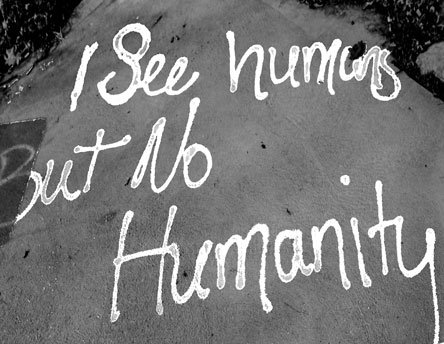 I See humans
but No
Humanity